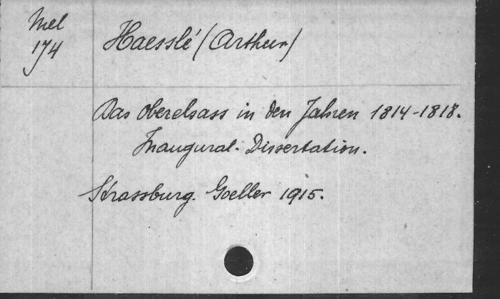 Mel
174
Haesslé (Arthur)
Das Oberelsass in den Jahren 1814-1818.
Inaugural-Dissertation.
Strassburg. Goeller 1915.